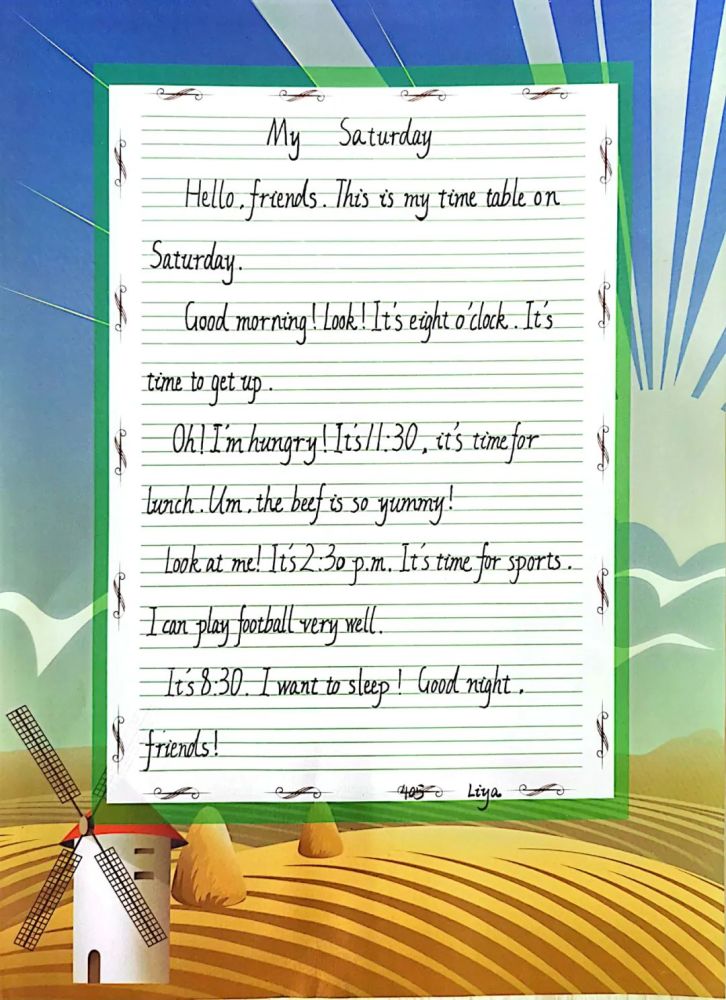 My Saturday
Hello, friends. This is my time table on
Saturday.
Good morning! Look! It's eight o'clock. It's
time to get up.
Oh! I'm hungry! It's 11:30, it's time for
lunch. Um, the beef is so yummy!
Look at me! It's 2:30 p.m. It's time for sports.
I can play football very well.
It's 8:30. I want to sleep! Good night,
friends!
405 Liya